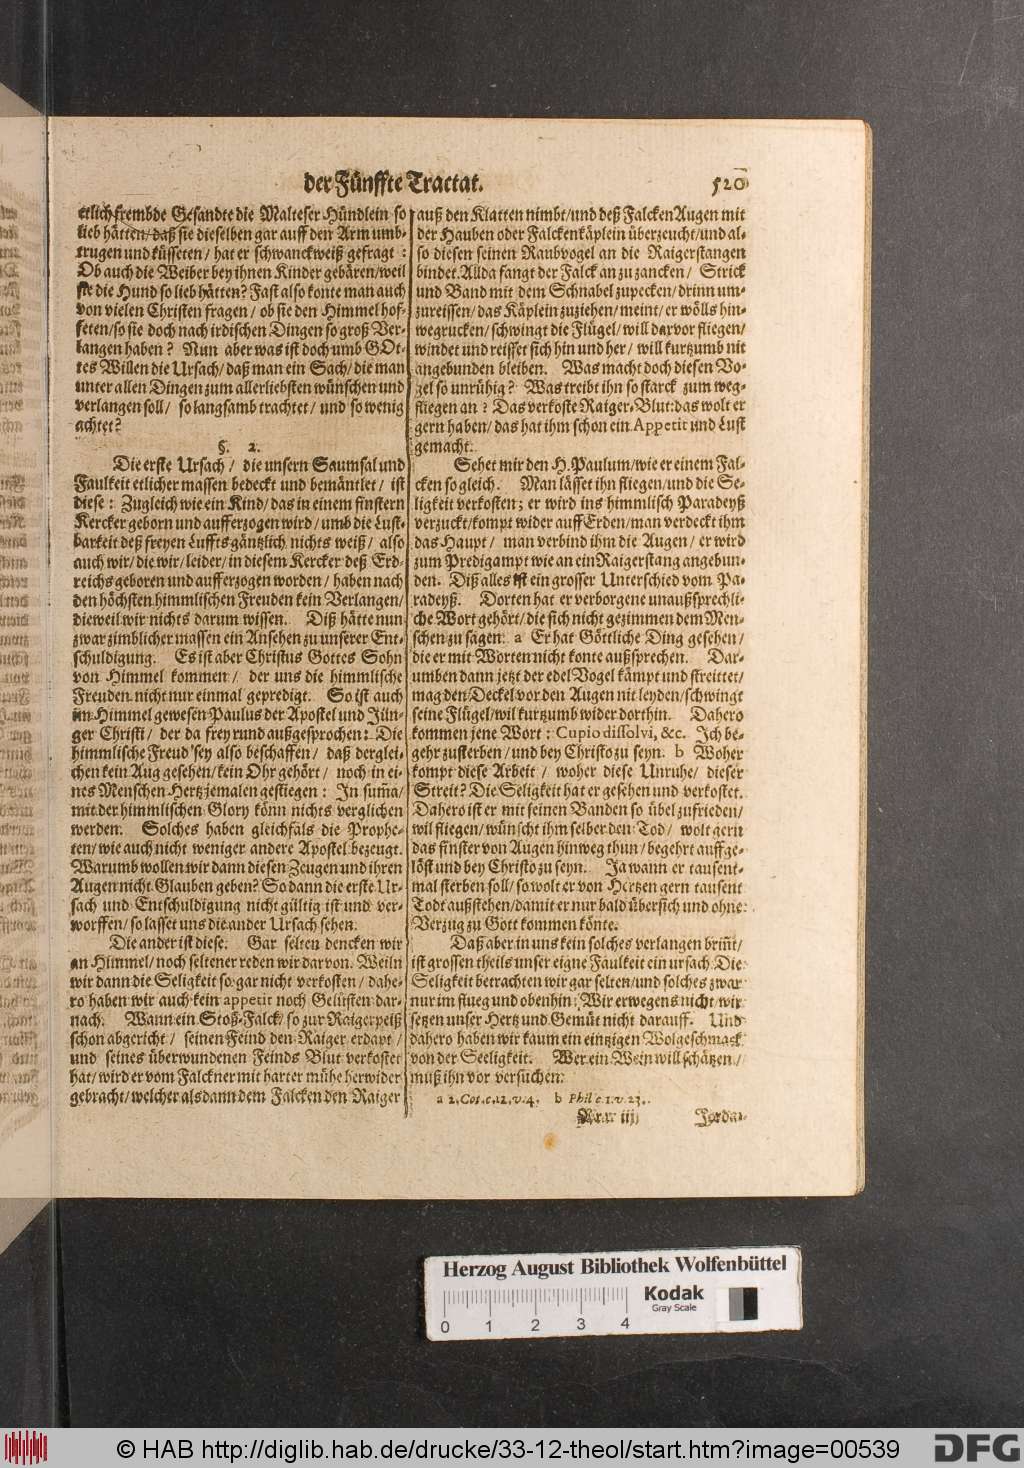 der Fünffte Tractat.
520
etlich frembde Gesandte die Malteser Hündlein so
lieb hätten/ daß sie dieselben gar auff den Arm umb-
trugen und küsseten/ hat er schwanckweiß gefragt:
Ob auch die Weiber bey ihnen Kinder gebären/ weil
sie die Hund so lieb hätten? Fast also konte man auch
von vielen Christen fragen/ ob sie den Himmel hof-
feten/ so sie doch nach irdischen Dingen so groß Ver-
langen haben? Nun aber was ist doch umb GOt-
tes Willen die Ursach/ daß man ein Sach/ die man
unter allen Dingen zum allerliebsten wünschen und
verlangen soll/ so langsamb trachtet/ und so wenig
achtet?
§. 2.
Die erste Ursach/ die unsern Saumsal und
Faulkeit etlicher massen bedeckt und bemäntlet/ ist
diese: Zugleich wie ein Kind/ das in einem finstern
Kercker geborn und aufferzogen wird/ umb die Lust-
barkeit deß freyen Luffts gäntzlich nichts weiß/ also
auch wir/ die wir/ leider/ in diesem Kercker deß Erd-
reichs geboren und aufferzogen worden/ haben nach
den höchsten himmlischen Freuden kein Verlangen/
dieweil wir nichts darum wissen. Diß hätte nun
zwar zimblicher massen ein Ansehen zu unserer Ent-
schuldigung. Es ist aber Christus Gottes Sohn
von Himmel kommen/ der uns die himmlische
Freuden nicht nur einmal gepredigt. So ist auch
im Himmel gewesen Paulus der Apostel und Jün-
ger Christi/ der da frey rund außgesprochen: Die
himmlische Freud sey also beschaffen/ daß derglei-
chen kein Aug gesehen/ kein Ohr gehört/ noch in ei-
nes Menschen Hertz jemalen gestiegen: In sum̃a/
mit der himmlischen Glory könn nichts verglichen
werden. Solches haben gleichfals die Prophe-
ten/ wie auch nicht weniger andere Apostel bezeugt.
Warumb wollen wir dann diesen Zeugen und ihren
Augen nicht Glauben geben? So dann die erste Ur-
sach und Entschuldigung nicht gültig ist und ver-
worffen/ so lasset uns die ander Ursach sehen.
Die ander ist diese. Gar selten dencken wir
an Himmel/ noch seltener reden wir darvon. Weiln
wir dann die Seligkeit so gar nicht verkosten/ dahe-
ro haben wir auch kein appetit noch Gelüsten dar-
nach. Wann ein Stoß-Falck/ so zur Raigerpeiß
schon abgericht/ seinen Feind den Raiger erdapt/
und seines überwundenen Feinds Blut verkostet
hat/ wird er vom Falckner mit harter mühe herwider
gebracht/ welcher als dann dem Falcken den Raiger
auß den Klatten nimbt/ und deß Falcken Augen mit
der Hauben oder Falckenkäplein überzeucht/ und al-
so diesen seinen Raubvogel an die Raigerstangen
bindet. Allda fangt der Falck an zu zancken/ Strick
und Band mit dem Schnabel zupecken/ drinn um-
zureissen/ das Käplein zuziehen/ meint/ er wölls hin-
wegrucken/ schwingt die Flügel/ will darvor fliegen/
windet und reisset sich hin und her/ will kurtzumb nit
angebunden bleiben. Was macht doch diesen Vo-
gel so unrühig? Was treibt ihn so starck zum weg-
fliegen an? Das verkoste Raiger-Blut: das wolt er
gern haben/ das hat ihm schon ein Appetit und Lust
gemacht.
Sehet mir den H. Paulum/ wie er einem Fal-
cken so gleich. Man lässet ihn fliegen/ und die Se-
ligkeit verkosten; er wird ins himmlisch Paradeyß
verzuckt/ kompt wider auff Erden/ man verdeckt ihm
das Haupt/ man verbind ihm die Augen/ er wird
zum Predigampt wie an ein Raigerstang angebun-
den. Diß alles ist ein grosser Unterschied vom Pa-
radeyß. Dorten hat er verborgene unaußsprechli-
che Wort gehört/ die sich nicht gezimmen dem Men-
schen zu sagen: a Er hat Göttliche Ding gesehen/
die er mit Worten nicht konte außsprechen. Dar-
umben dann jetzt der edel Vogel kämpt und streittet/
mag den Deckel vor den Augen nit leyden/ schwingt
seine Flügel/ wil kurtzumb wider dorthin. Dahero
kommen jene Wort: Cupio dissolvi, &c. Ich be-
gehr zusterben/ und bey Christo zu seyn. b Woher
kompt diese Arbeit/ woher diese Unruhe/ dieser
Streit? Die Seligkeit hat er gesehen und verkostet.
Dahero ist er mit seinen Banden so übel zufrieden/
wil fliegen/ wünscht ihm selber den Tod/ wolt gern
das finster von Augen hinweg thun/ begehrt auffge-
löst und bey Christo zu seyn. Ja wann er tausent-
mal sterben soll/ so wolt er von Hertzen gern tausent
Todt außstehen/ damit er nur bald übersich und ohne
Verzug zu Gott kommen könte.
Daß aber in uns kein solches verlangen brin̄t/
ist grossen theils unser eigne Faulkeit ein ursach. Die
Seligkeit betrachten wir gar selten/ und solches zwar
nur im flueg und obenhin; Wir erwegens nicht/ wir
setzen unser Hertz und Gemüt nicht darauff. Und
dahero haben wir kaum ein eintzigen Wolgeschmack
von der Seeligkeit. Wer ein Wein will schätzen/
muß ihn vor versuchen.
a 2. Cor. c. 12. v. 4. b Phil c. 1. v. 23.
iij
Jordai-
Herzog August Bibliothek Wolfenbüttel
Kodak
Gray Scale
0 1 2 3 4
© HAB http://diglib.hab.de/drucke/33-12-theol/start.htm?image=00539
DFG